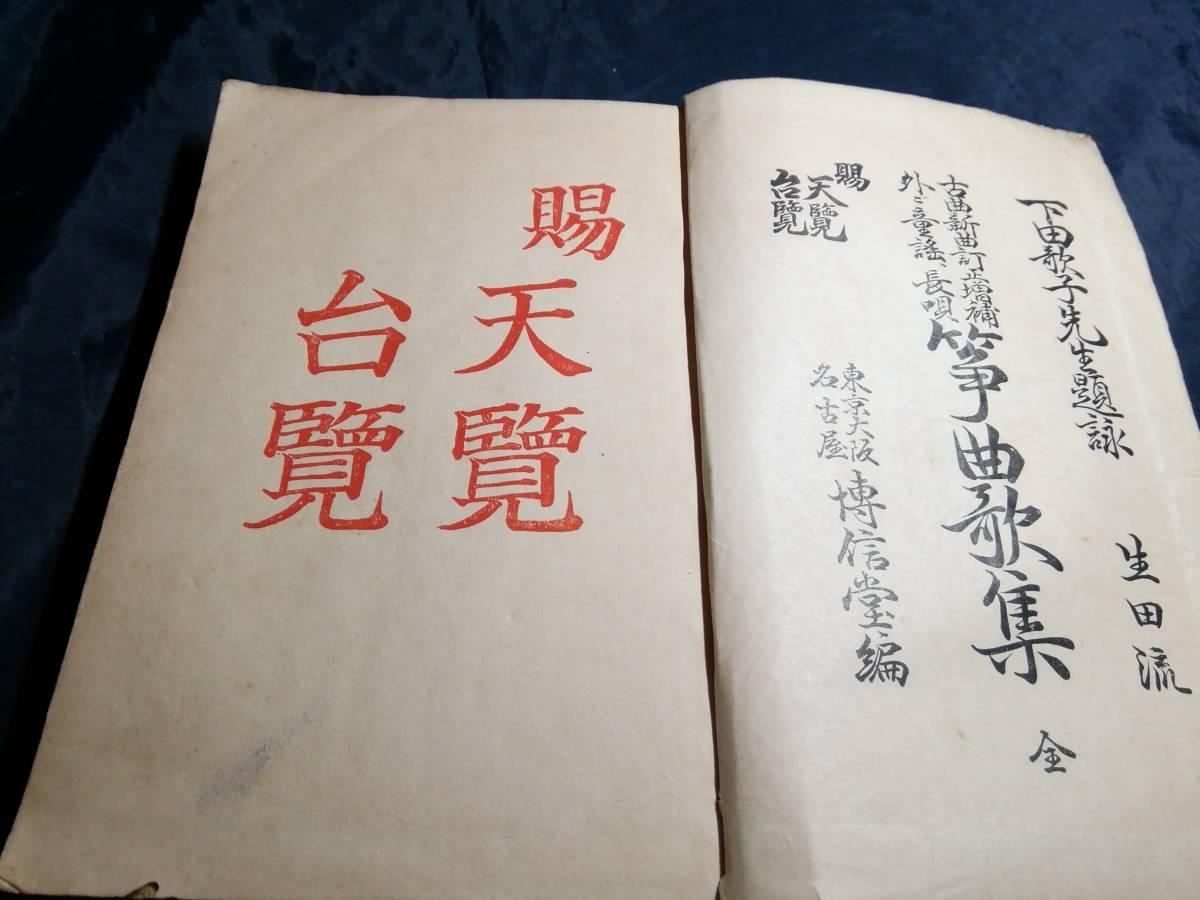 下田歌子先生題詠
生田流
古曲新曲訂正増補
外ニ童謡、長唄
箏曲歌集 全
賜
天覽
台覽
東京大阪
名古屋
博信堂編
賜
天覽
台覽